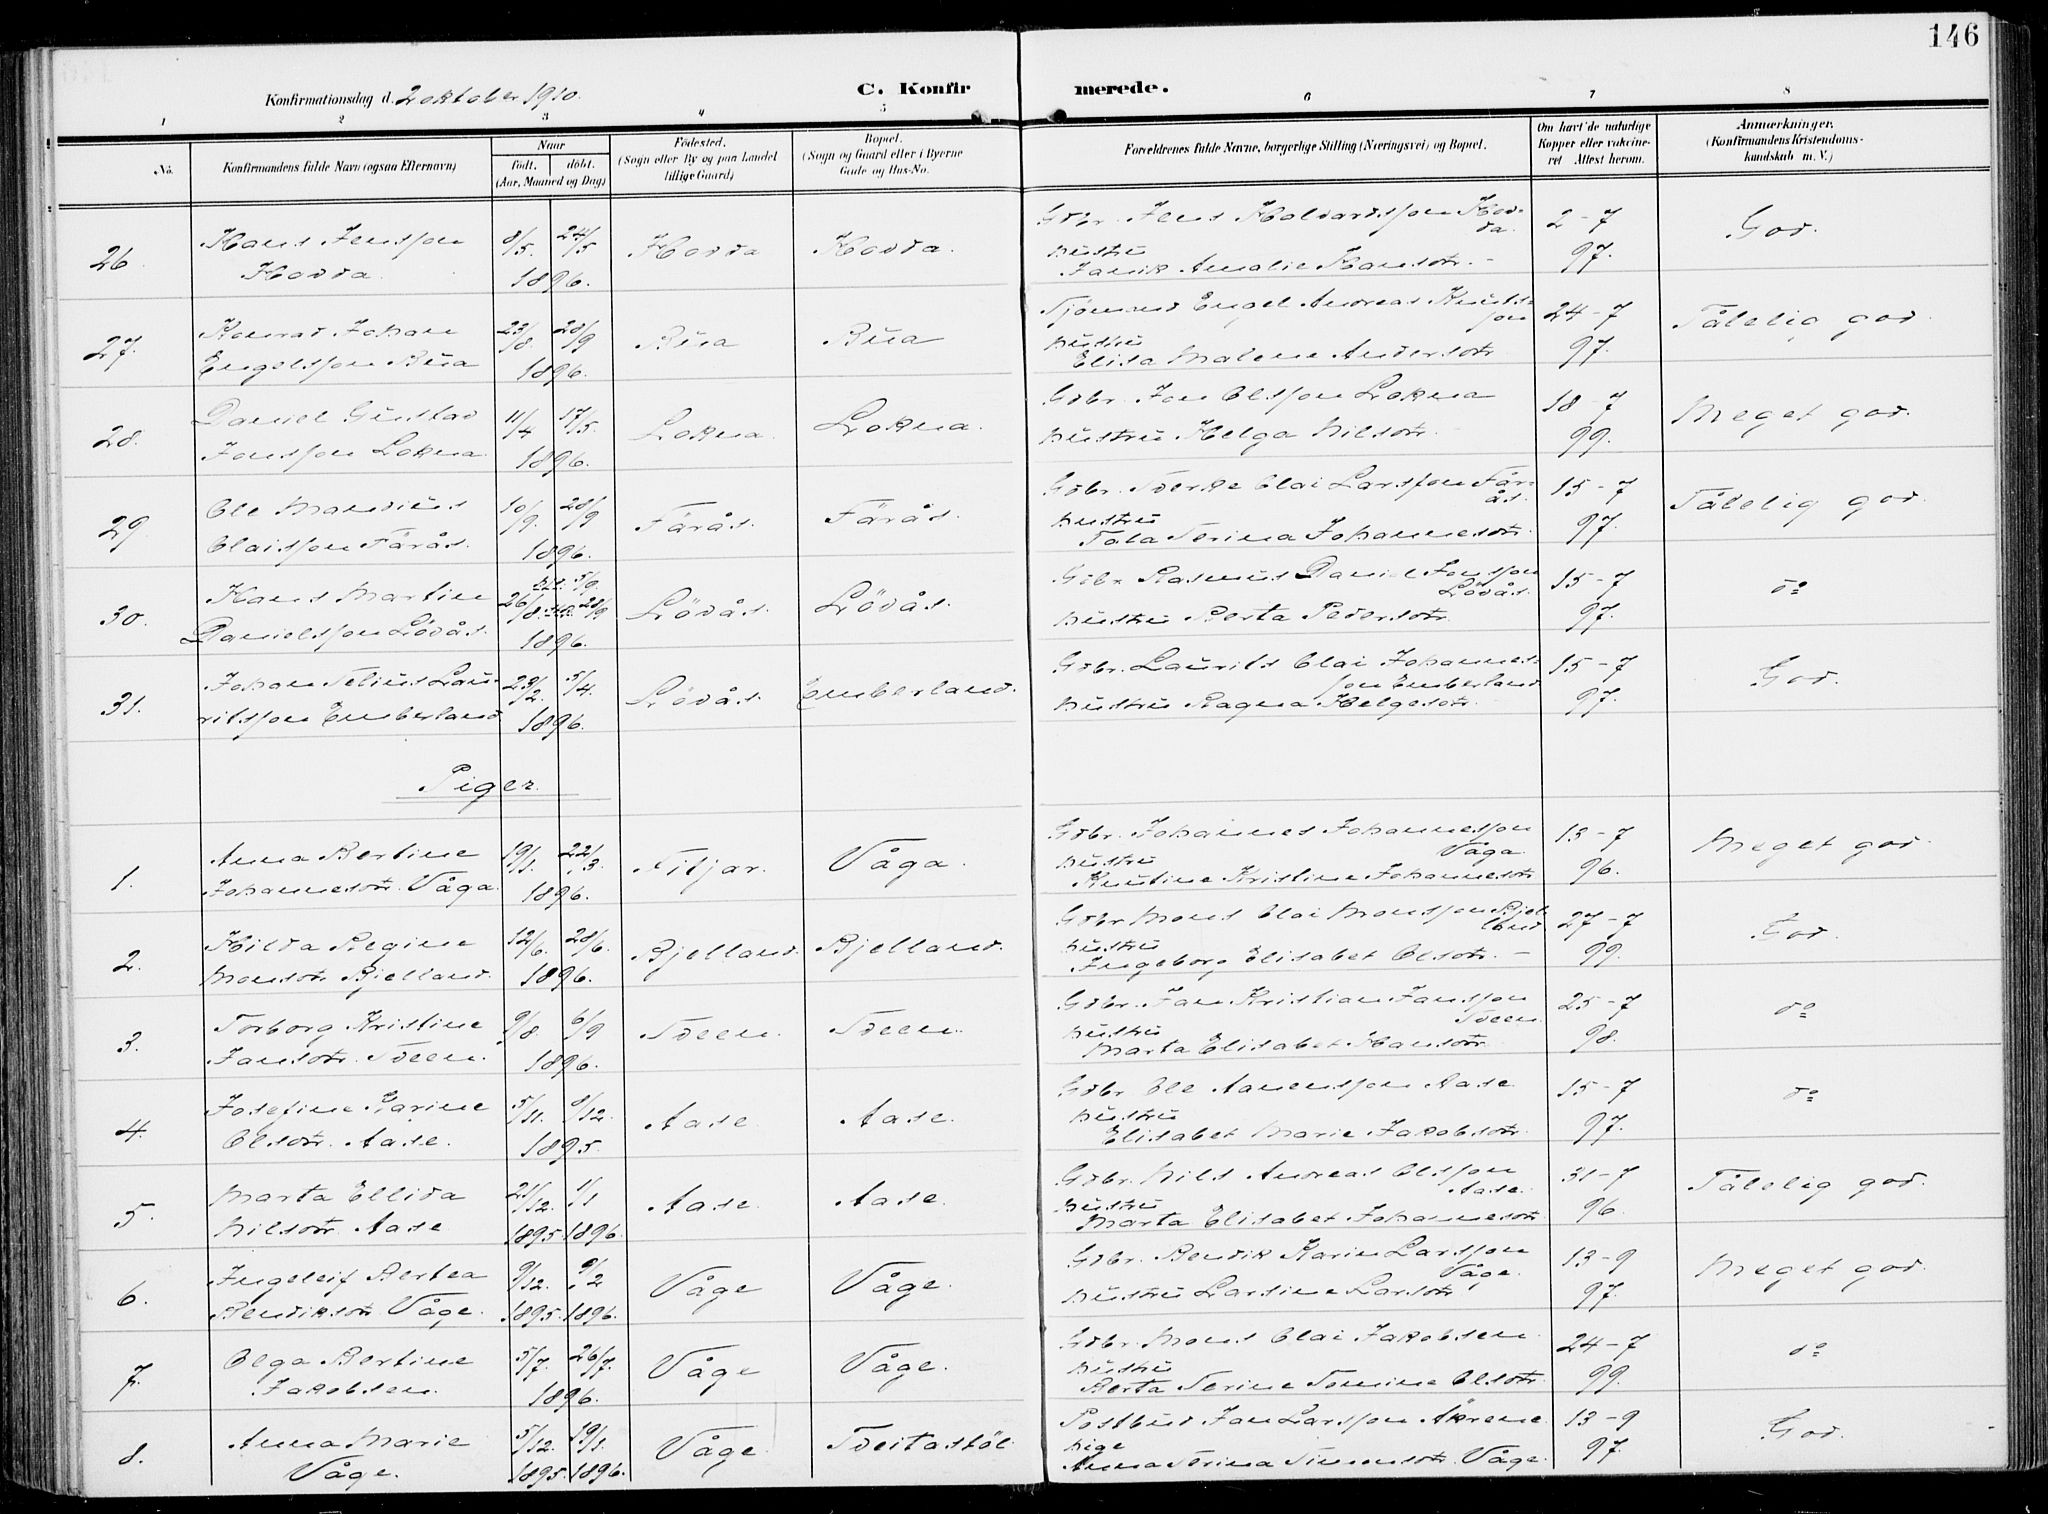 146
Konfirmationsdag d. 2 oktober 1910.
C. Konfirmerede.
1 2 3 4 5 6 7 8
No.
Konfirmandens fulde Navn (ogsaa Efternavn)
Naar
født. døbt.
(Aar, Maaned og Dag)
Fødested.
(Sogn eller By og paa Landet
tillige Gaard)
Bopæl.
(Sogn og Gaard eller i Byerne
Gade og Hus-No.
Forældrenes fulde Navne, borgerlige Stilling (Næringsvei) og Bopæl.
Om havt de naturlige
Kopper eller vakcine-
ret Attest herom.
Anmærkninger.
(Konfirmandens Kristendoms-
kundskab m. V.)
26. Hans Jensson Hovda. 8/5. 24/5 1896. Hovda Hovda.
Gdbr. Jens Halvardsson Hovda.
hustru
Janik Amalie Hansdtr. 2-7 97. God.
27. Konrad Johan Engelsson Bua 23/8. 20/9 1896. Bua Bua
Sjømand Engel Andreas Knutsson
hustru
Elisa Malene Andersdtr 24-7 97. Tålelig god.
28. Daniel Gustav Jonsson Lokna 11/4 17/5. 1896. Lokna. Lokna.
Gdbr. Jon Olsson Lokna
hustru Helga Nilsdtr. 18-7 99. Meget god.
29. Ole Mandius Olaisson Färås. 10/9. 20/9 1896. Färås. Färås.
Gdbr. Sverke Olai Larsson Färås.
hustru
Tala Serina Johannesdtr. 15-7 97. Tålelig god.
30. Hans Martin Danielsson Lövås. 26/8. 5/9. 20/9 1896. Lövås. Lövås.
Gdbr Rasmus Daniel Jonsson Lövås.
hustru Berta Pedersdtr. 15-7 97. do
31. Johan Selius Lauritsson Emberland 23/2. 5/4. 1896. Lövås. Emberland.
Gdbr. Laurits Olai Johannesson Emberland
hustru Ragna Helgesdtr. 15-7 97. God.
Piger.
1. Anna Bertine Johannesdtr. Våga. 19/1. 22/3. 1896. Fitjar. Våga.
Gdbr. Johannes Johannesson Våga.
hustru
Knutine Kristine Johannesdtr 13-7 96. Meget god.
2. Hilda Regine Monsdtr Bjelland. 12/6. 28/6. 1896. Bjelland. Bjelland.
Gdbr Mons Olai Monsson Bjelland
hustru
Ingeborg Elisabet Olsdtr. 27-7 99. God.
3. Torborg Kristine Jansdtr. Sveen. 9/8. 6/9 1896. Sveen. Sveen.
Gdbr. Jan Kristian Jansson Sveen
hustru
Marta Elisabet Hansdtr. 25-7 98. do
4. Josefine Karine Olsdtr. Aase. 5/11. 8/12. 1895. Aase. Aase.
Gdbr Ole Aamensson Aase.
hustru
Elisabet Marie Jakobsdtr. 15-7 97. do
5. Marta Ellida Nilsdtr Aase 21/12. 1/1 1895. 1896. Aase. Aase.
Gdbr. Nils Andreas Olsson Aase.
hustru
Marta Elisabet Johannesdtr 31-7 96. Tålelig god.
6. Ingeleif Bertea Bendiksdtr Våge. 9/12. 9/2 1895. 1896. Våge Våge.
Gdbr. Bendik Karin Larsson Våge.
hustru Larsine Larsdtr 13-9 97. Meget god.
7. Olga Bertine Jakobsen. 5/7. 26/7. 1896. Våge Våge.
Gdbr. Mons Olai Jakobsen
hustru
Berta Serine Tomine Olsdtr. 24-7 99. do
8. Anna Marie Våge. 5/12. 19/1. 1895. 1896. Våge. Sveitastöl.
Postbud Jan Larsson Åkrene
pige
Anna Serina Simonsdtr. Våge. 13-9 97. God.